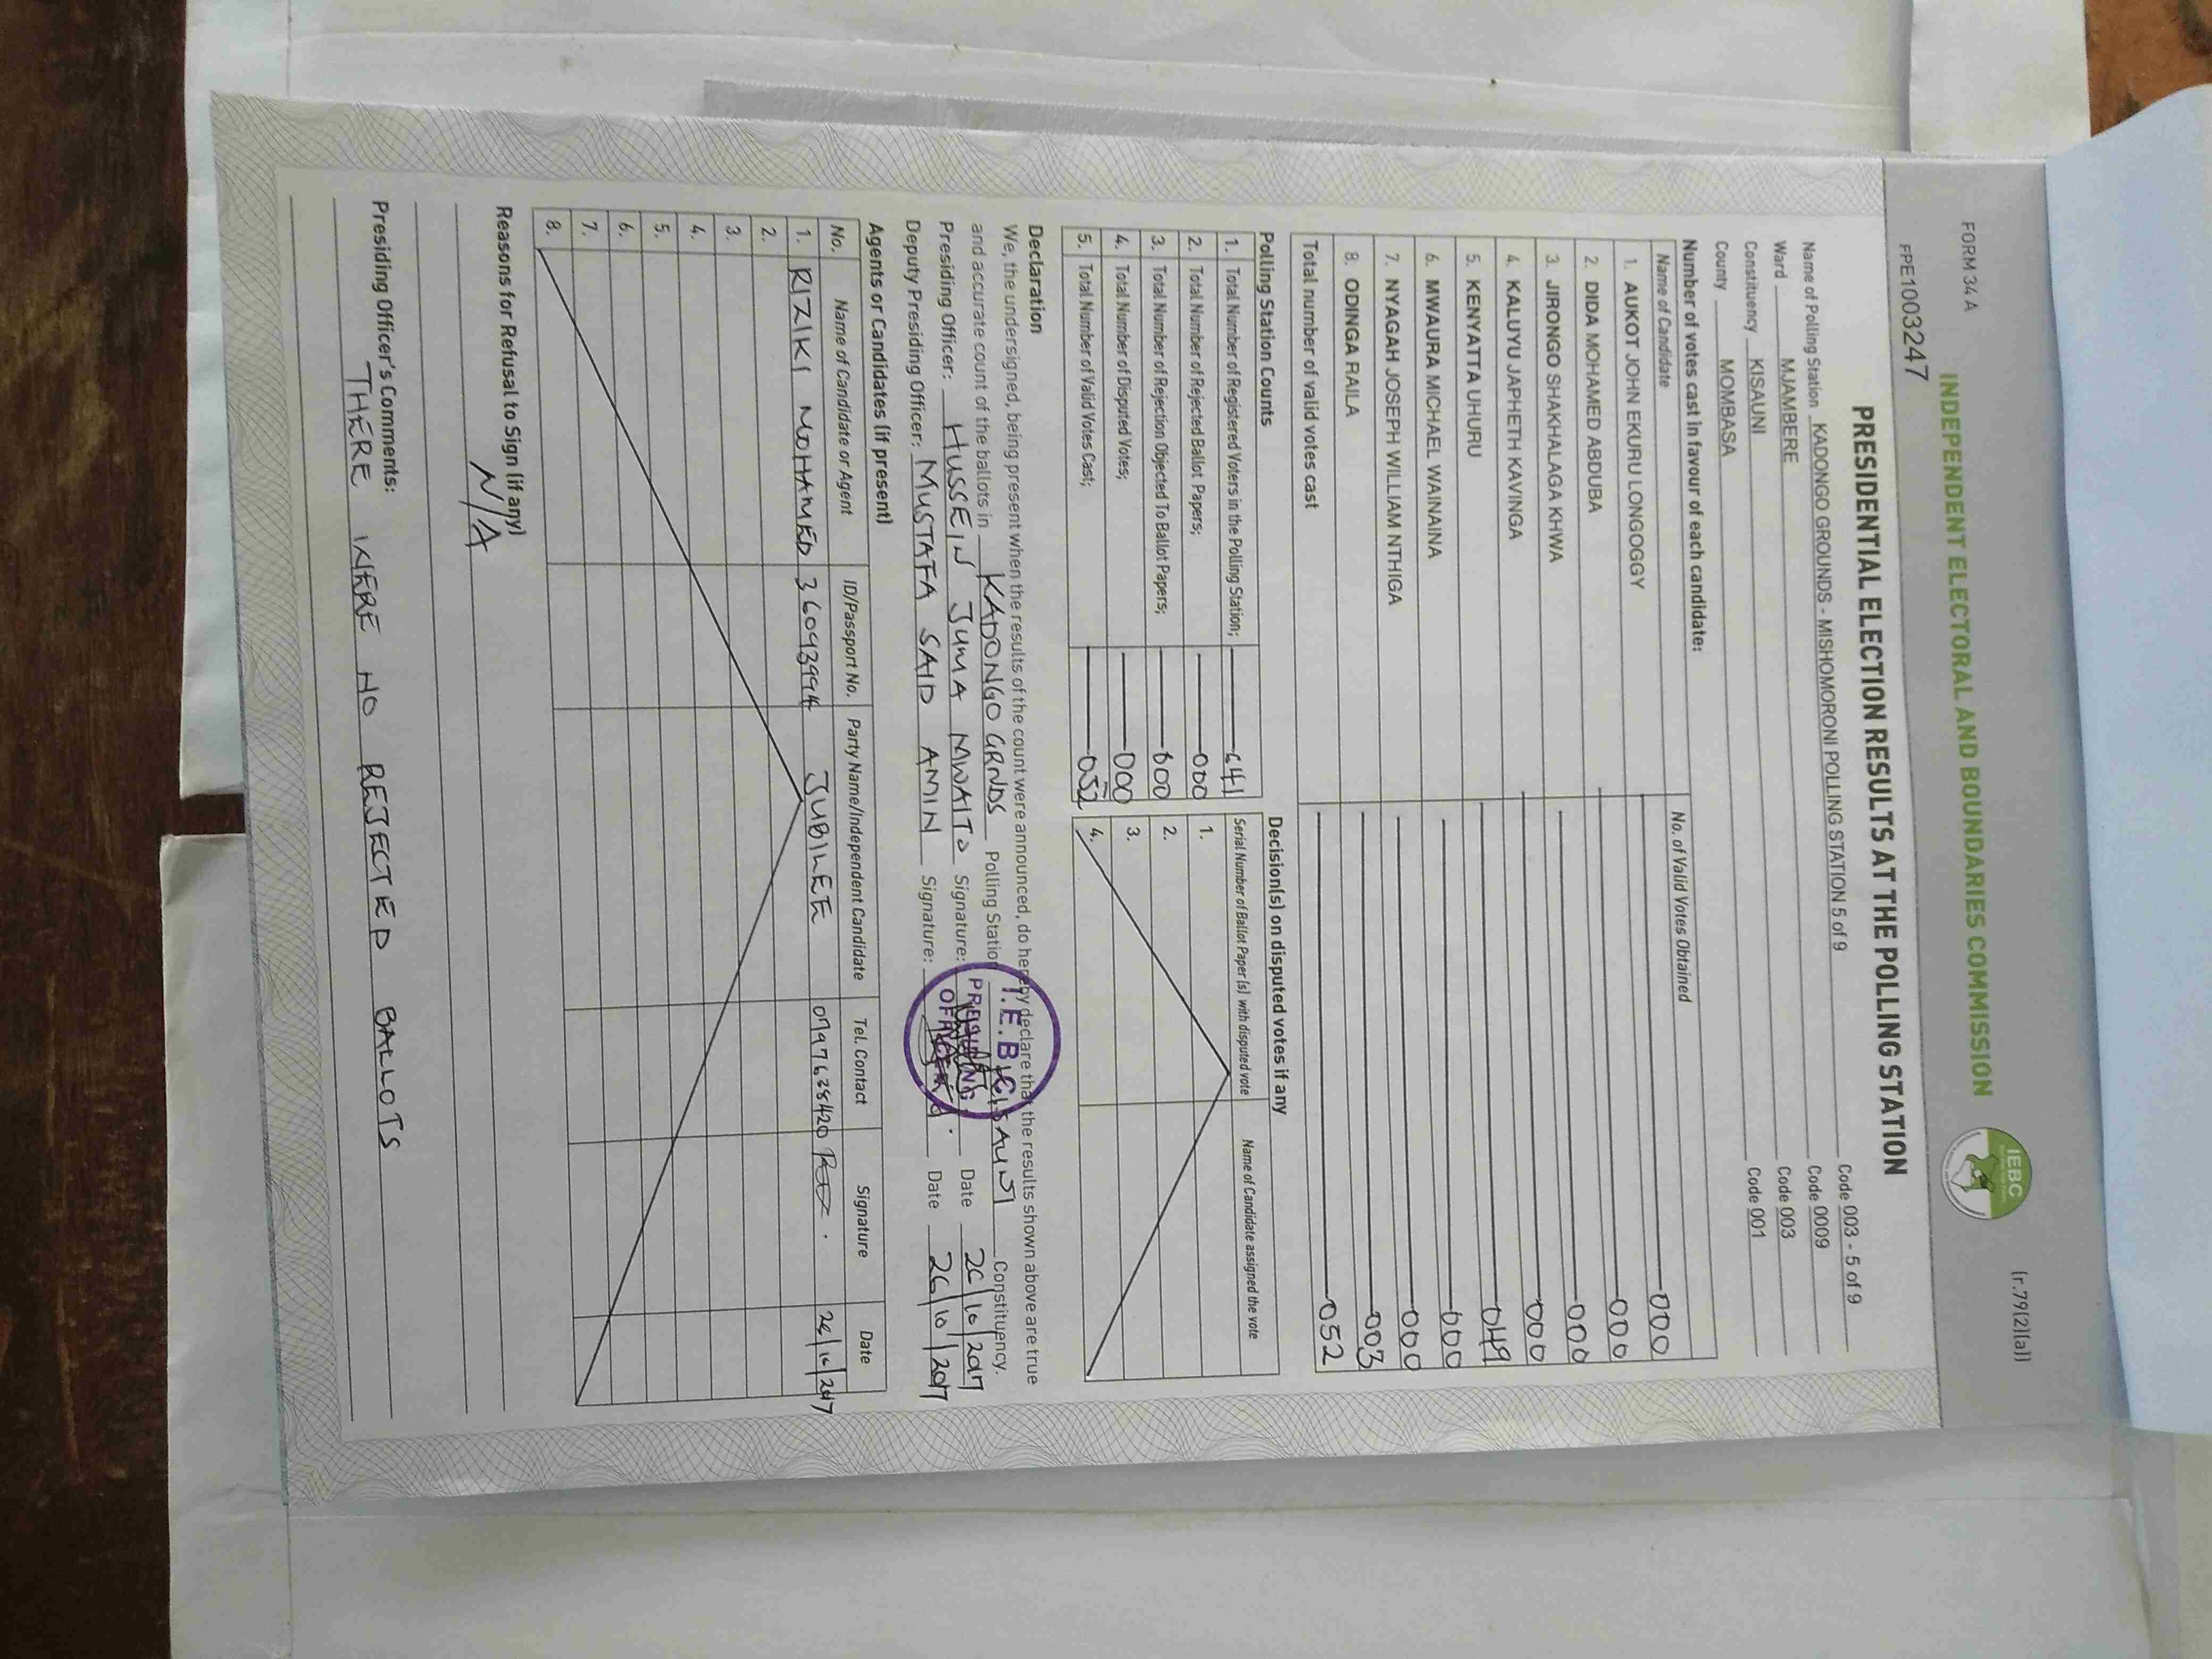 FORM 34 A
(r.79(2)(a))
INDEPENDENT ELECTORAL AND BOUNDARIES COMMISSION
IEBC
FPE1003247
PRESIDENTIAL ELECTION RESULTS AT THE POLLING STATION
Name of Polling Station KADONGO GROUNDS - MISHOMORONI POLLING STATION 5 of 9 Code 003 - 5 of 9
Ward MJAMBERE Code 0009
Constituency KISAUNI Code 003
County MOMBASA Code 001
Number of votes cast in favour of each candidate:
Name of Candidate No. of Valid Votes Obtained
1. AUKOT JOHN EKURU LONGOGGY 000
2. DIDA MOHAMED ABDUBA 000
3. JIRONGO SHAKHALAGA KHWA 000
4. KALUYU JAPHETH KAVINGA 000
5. KENYATTA UHURU 049
6. MWAURA MICHAEL WAINAINA 000
7. NYAGAH JOSEPH WILLIAM NTHIGA 000
8. ODINGA RAILA 003
Total number of valid votes cast 052
Polling Station Counts
1. Total Number of Registered Voters in the Polling Station; 641
2. Total Number of Rejected Ballot Papers; 000
3. Total Number of Rejection Objected To Ballot Papers; 000
4. Total Number of Disputed Votes; 000
5. Total Number of Valid Votes Cast; 052
Decision(s) on disputed votes if any
Serial Number of Ballot Paper(s) with disputed vote Name of Candidate assigned the vote
1.
2.
3.
4.
Declaration
We, the undersigned, being present when the results of the count were announced, do hereby declare that the results shown above are true
and accurate count of the ballots in KADONGO GRNDS Polling Station KISAUNI Constituency.
Presiding Officer: HUSSEIN JUMA MWAITA Signature: Date 26/10/2017
Deputy Presiding Officer: MUSTAFA SAID AMIN Signature: Date 26/10/2017
I.E.B.C
PRESIDING
OFFICER
Agents or Candidates (if present)
No. Name of Candidate or Agent ID/Passport No. Party Name/Independent Candidate Tel. Contact Signature Date
1. RIZIKI MOHAMED 36093994 JUBILEE 0797638420 26/10/2017
2.
3.
4.
5.
6.
7.
8.
Reasons for Refusal to Sign (if any)
N/A
Presiding Officer's Comments:
THERE WERE NO REJECTED BALLOTS